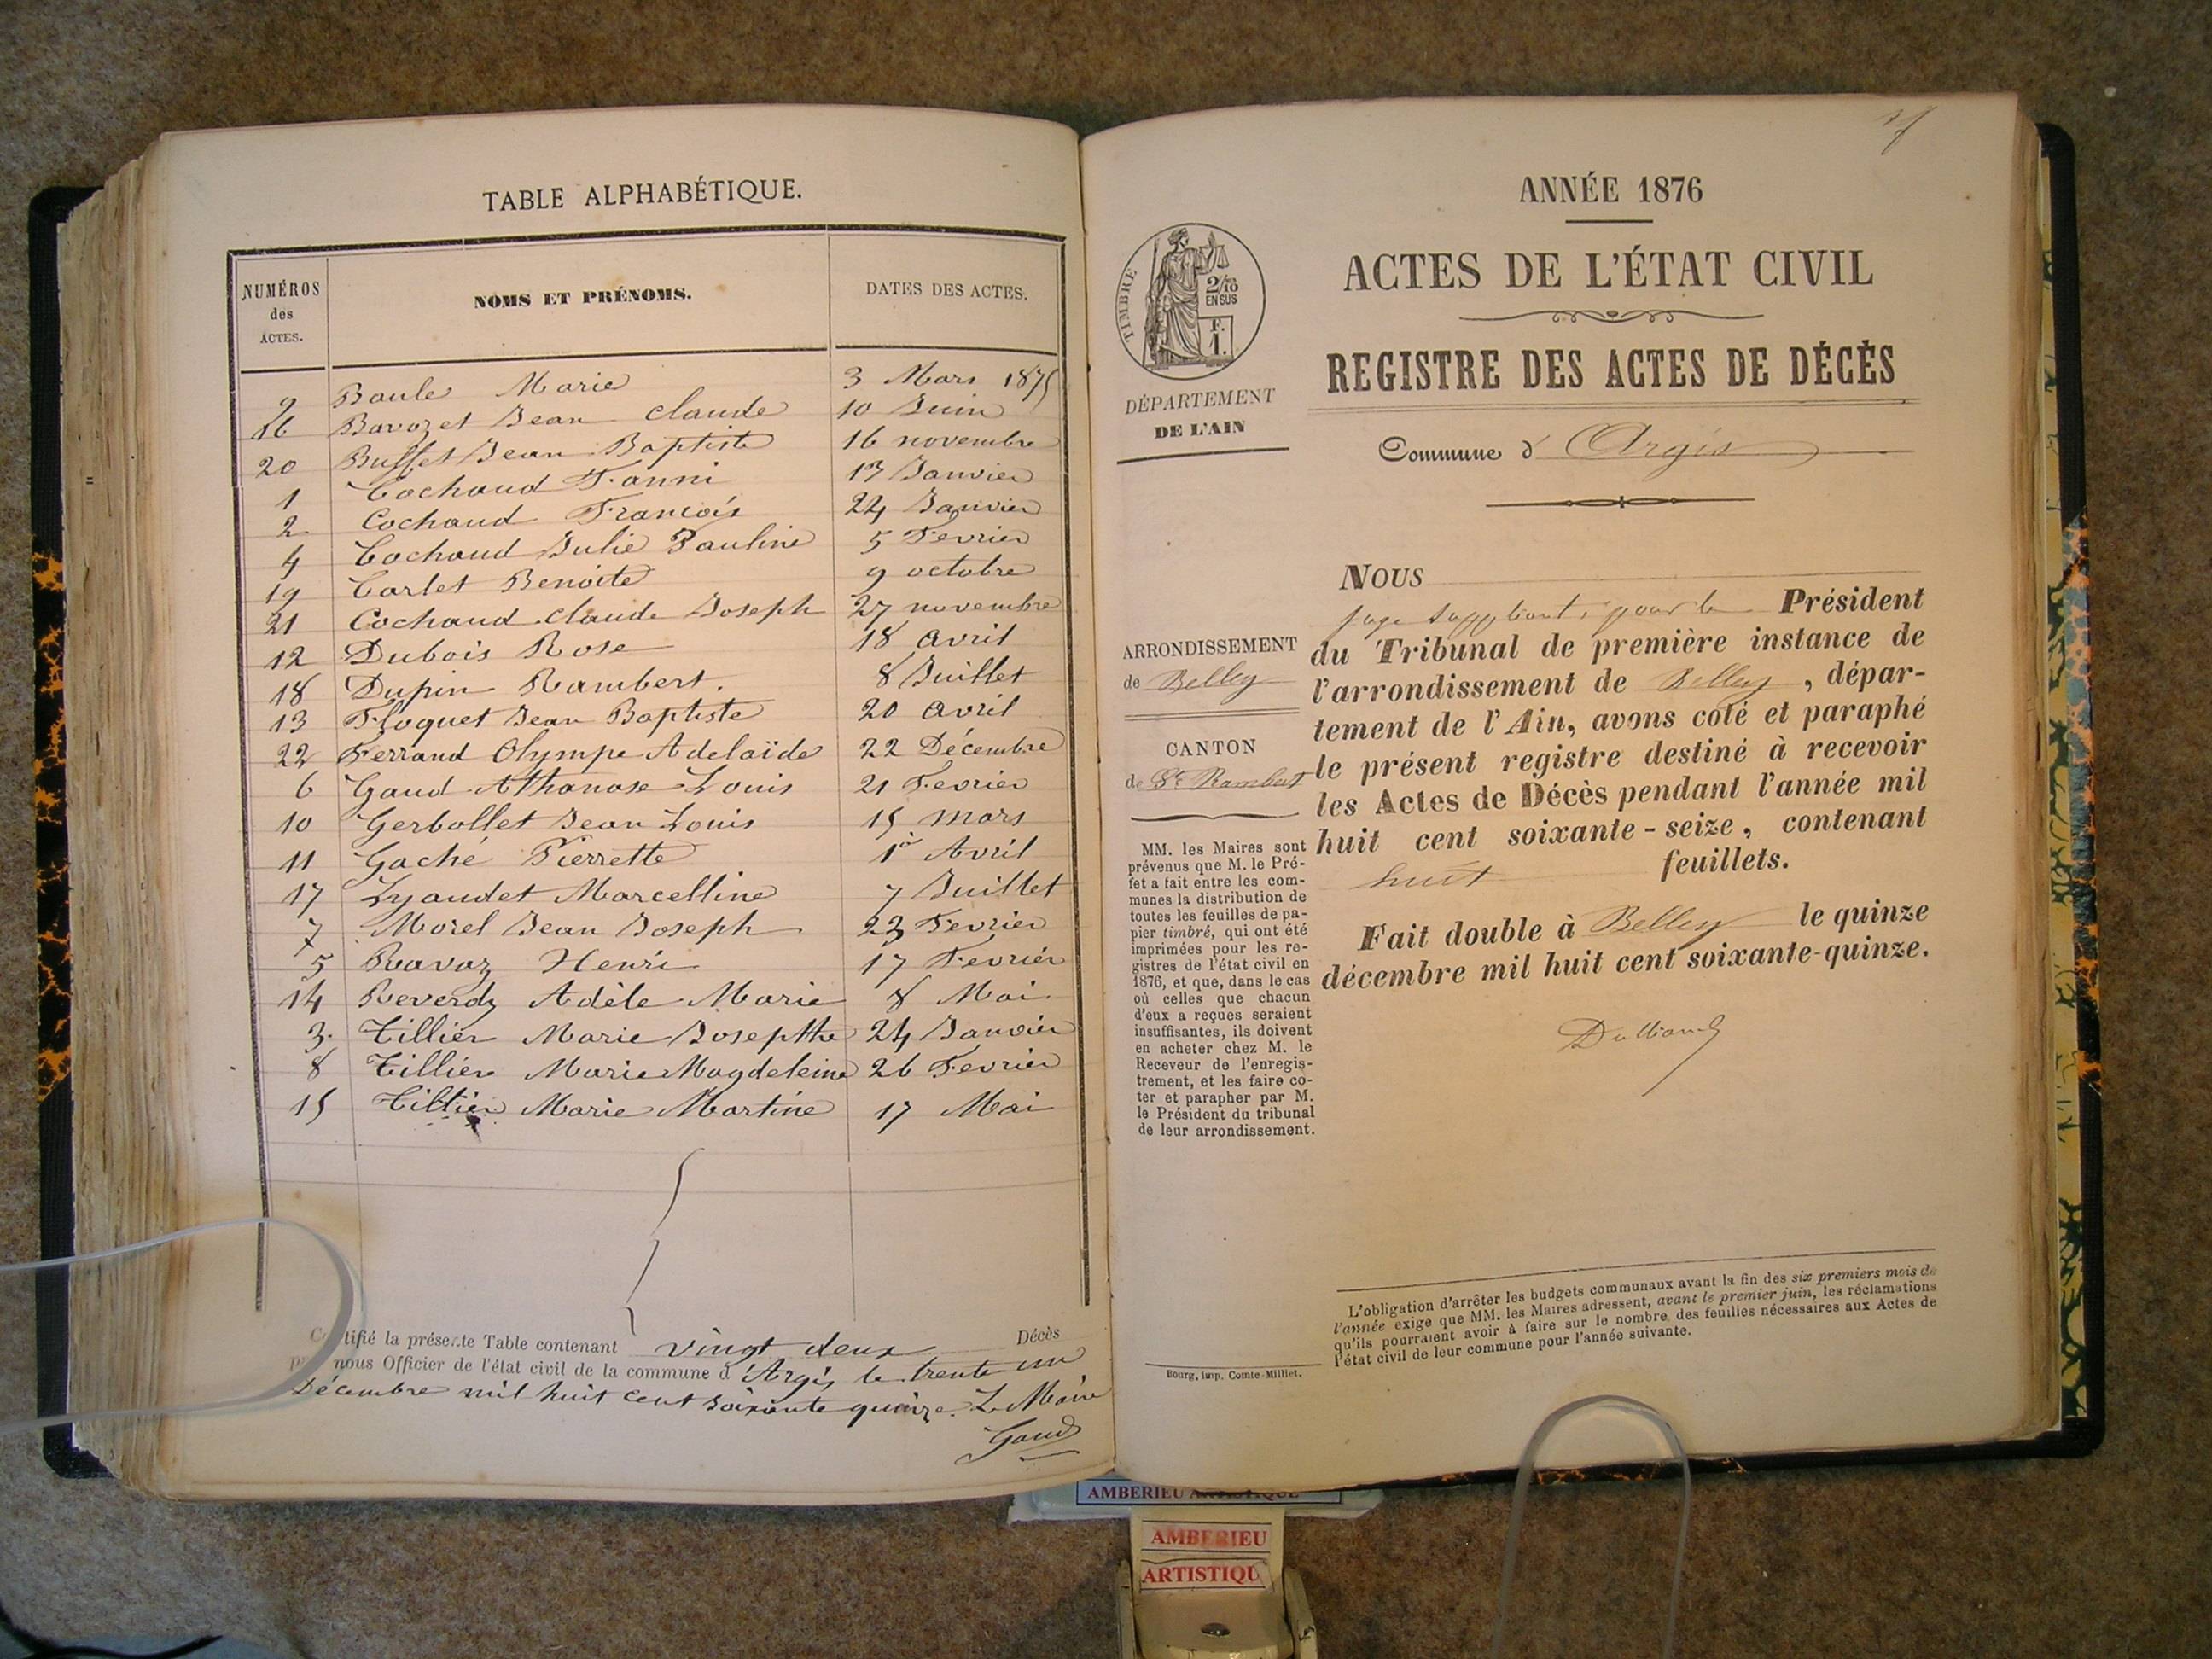 TABLE ALPHABÉTIQUE.
NUMÉROS des ACTES. NOMS ET PRÉNOMS. DATES DES ACTES.
9 Baule Marie 3 Mars 1875
16 Bavozet Jean Claude 10 Juin
20 Buffet Jean Baptiste 16 novembre
1 Cochaud Fanni 13 Janvier
2 Cochaud François 24 Janvier
4 Cochaud Julie Pauline 5 Fevrier
19 Carlet Benoite 9 octobre
21 Cochaud Claude Joseph 27 novembre
12 Dubois Rose 18 avril
18 Dupin Rambert. 8 Juillet
13 Floquet Jean Baptiste 20 avril
22 Ferrand Olympe Adelaïde 22 Décembre
6 Gaud Athanase Louis 21 Fevrier
10 Gerbollet Jean Louis 15 mars
11 Gaché Pierrette 1er Avril
17 Lyaudet Marcelline 7 Juillet
7 Morel Jean Joseph 23 Fevrier
5 Ravaz Henri 17 Fevrier
14 Reverdy Adèle Marie 8 Mai
3. Tillier Marie Josephthe 24 Janvier
8 Tillier Marie Magdeleine 26 Fevrier
15 Tillier Marie Martine 17 Mai
tifié la présente Table contenant vingt deux Décès
nous Officier de l'état civil de la commune d'Argis le trente un
Décembre mil huit cent soixante quinze. Le Maire
Gaud
ANNÉE 1876
ACTES DE L'ÉTAT CIVIL
REGISTRE DES ACTES DE DÉCÈS
Commune d'Argis
TIMBRE
2/10
EN SUS
F.
1.
DÉPARTEMENT
DE L'AIN
ARRONDISSEMENT
de Belley
CANTON
de St Rambert
MM. les Maires sont
prévenus que M. le Pré-
fet a fait entre les com-
munes la distribution de
toutes les feuilles de pa-
pier timbré, qui ont été
imprimées pour les re-
gistres de l'état civil en
1876, et que, dans le cas
où celles que chacun
d'eux a reçues seraient
insuffisantes, ils doivent
en acheter chez M. le
Receveur de l'enregis-
trement, et les faire co-
ter et parapher par M.
le Président du tribunal
de leur arrondissement.
NOUS
juge suppléant, pour le Président
du Tribunal de première instance de
l'arrondissement de Belley, dépar-
tement de l'Ain, avons coté et paraphé
le présent registre destiné à recevoir
les Actes de Décès pendant l'année mil
huit cent soixante-seize, contenant
huit feuillets.
Fait double à Belley le quinze
décembre mil huit cent soixante-quinze.
L'obligation d'arrêter les budgets communaux avant la fin des six premiers mois de
l'année exige que MM. les Maires adressent, avant le premier juin, les réclamations
qu'ils pourraient avoir à faire sur le nombre des feuilles nécessaires aux Actes de
l'état civil de leur commune pour l'année suivante.
Bourg, imp. Comte-Milliet.
AMBERIEU ARTISTIQUE
AMBERIEU
ARTISTIQU